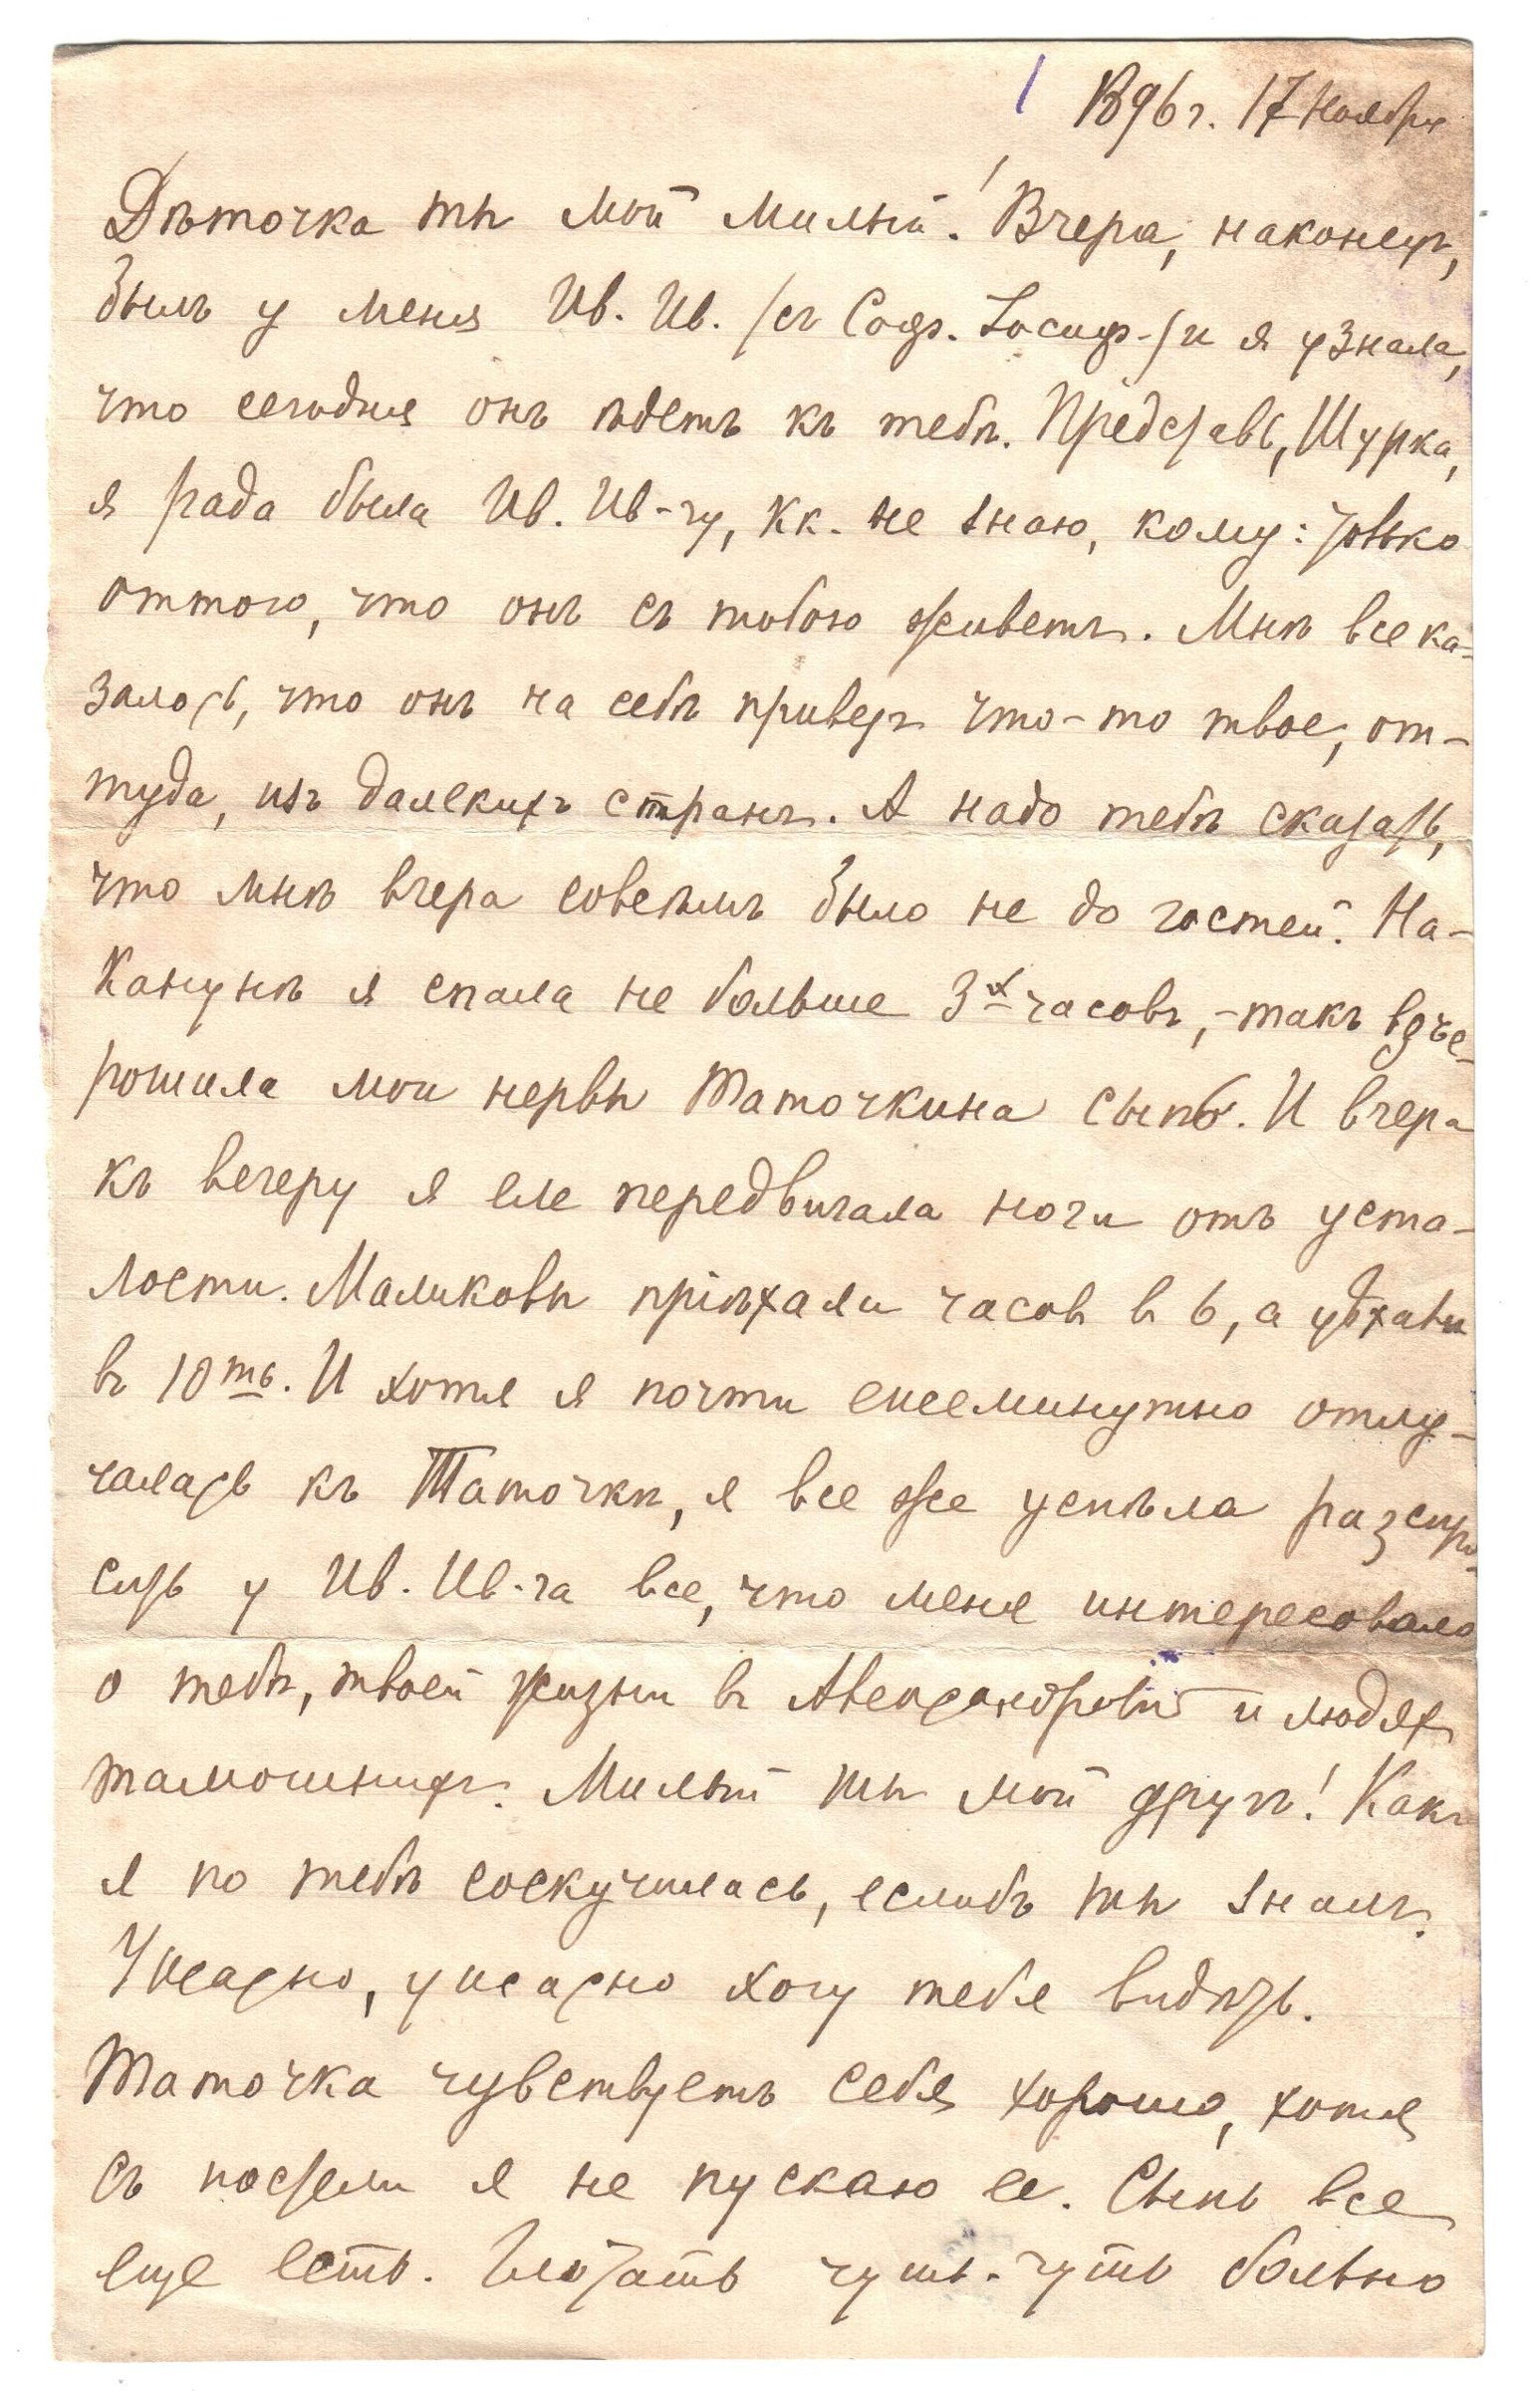 1896 г. 17 Ноября
Дѣточка ты мой милый! Вчера, наконецъ,
былъ у меня Ив. Ив. /съ Соф. Іосиф./ и я узнала,
что сегодня онъ ѣдетъ къ тебѣ. Представь, Шурка,
я рада была Ив. Ив-чу, кк. не знаю, кому: только
оттого, что онъ съ тобою живетъ. Мнѣ все ка-
залось, что онъ на себѣ привезъ что-то твое, от-
туда, изъ далекихъ странъ. А надо тебѣ сказать,
что мнѣ вчера совсѣмъ было не до гостей. На-
канунѣ я спала не больше 3х часовъ, - такъ взъе-
рошила мои нервы Таточкина сыпь. И вчера
къ вечеру я еле передвигала ноги отъ уста-
лости. Маликовы пріѣхали часов в 6, а уѣхали
въ 10ть. И хотя я почти ежеминутно отлу-
чалась къ Таточкѣ, я все же успѣла разспро-
сить у Ив. Ив-ча все, что меня интересовало
о тебѣ, твоей жизни въ Александровкѣ и людях
тамошнихъ. Милый ты мой другъ! Какъ
я по тебѣ соскучилась, еслибъ ты зналъ.
Ужасно, ужасно хочу тебя видѣть.
Таточка чувствуетъ себя хорошо, хотя
съ постели я не пускаю ее. Сыпь все
еще есть. Глотать чуть-чуть больно